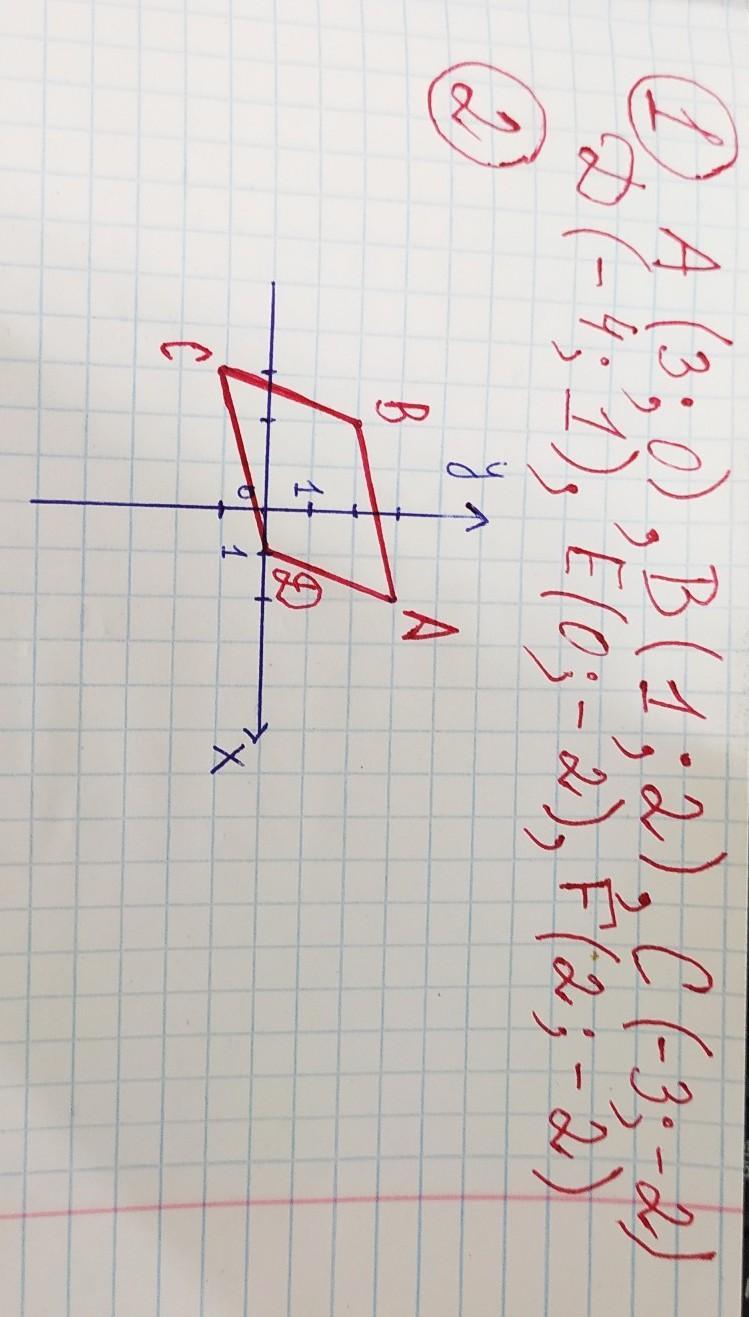 1 A (3; 0), B (1; 2), C (-3; -2)
D (-4; 1), E (0; -2), F (2; -2)
2
y
A
B
1
0
1
D
x
C